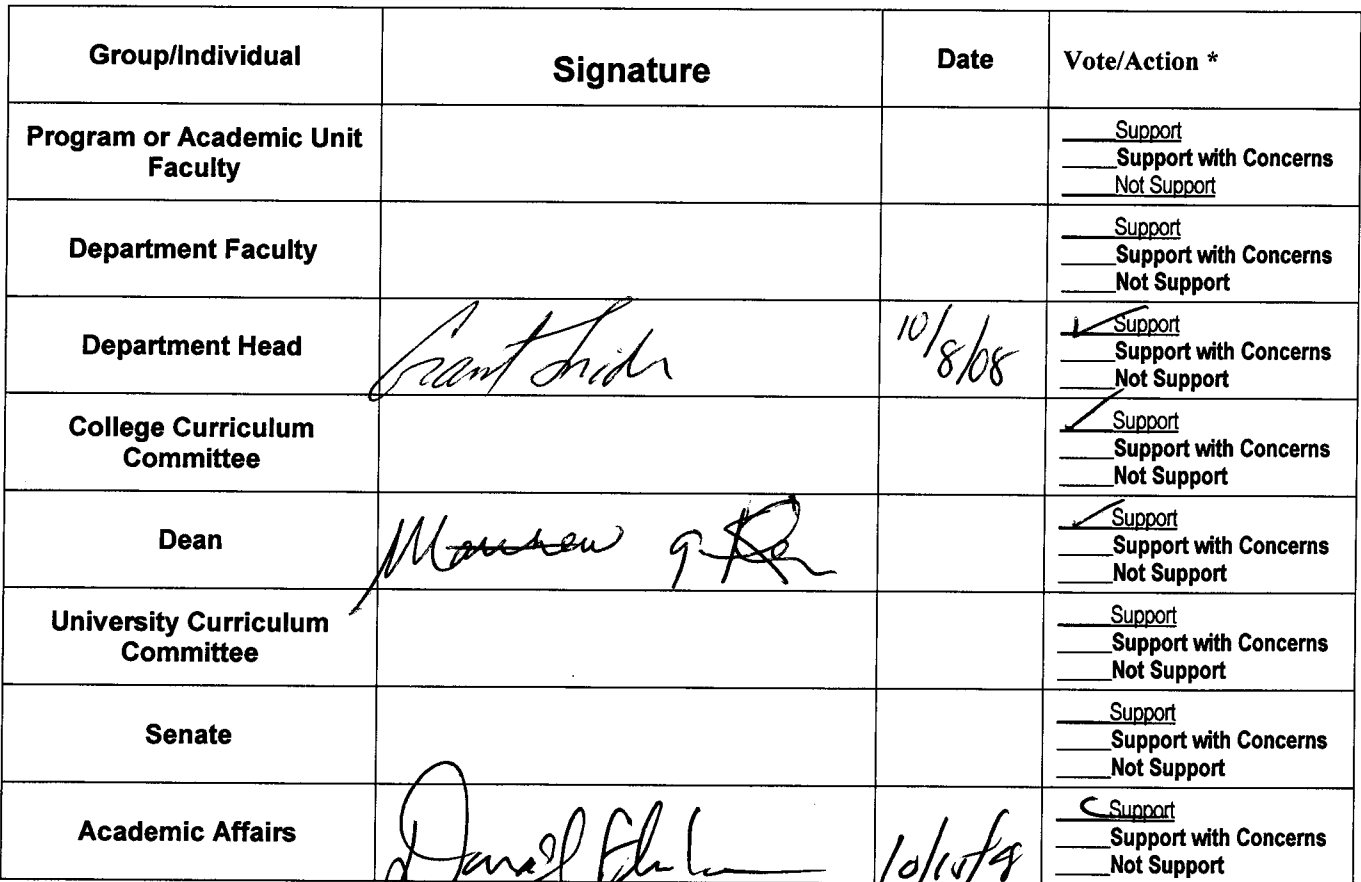 Group/Individual Signature Date Vote/Action *
Program or Academic Unit Faculty
____Support
____Support with Concerns
____Not Support
Department Faculty
____Support
____Support with Concerns
____Not Support
Department Head Grant 10/8/08
____Support
____Support with Concerns
____Not Support
College Curriculum Committee
____Support
____Support with Concerns
____Not Support
Dean
____Support
____Support with Concerns
____Not Support
University Curriculum Committee
____Support
____Support with Concerns
____Not Support
Senate
____Support
____Support with Concerns
____Not Support
Academic Affairs
____Support
____Support with Concerns
____Not Support